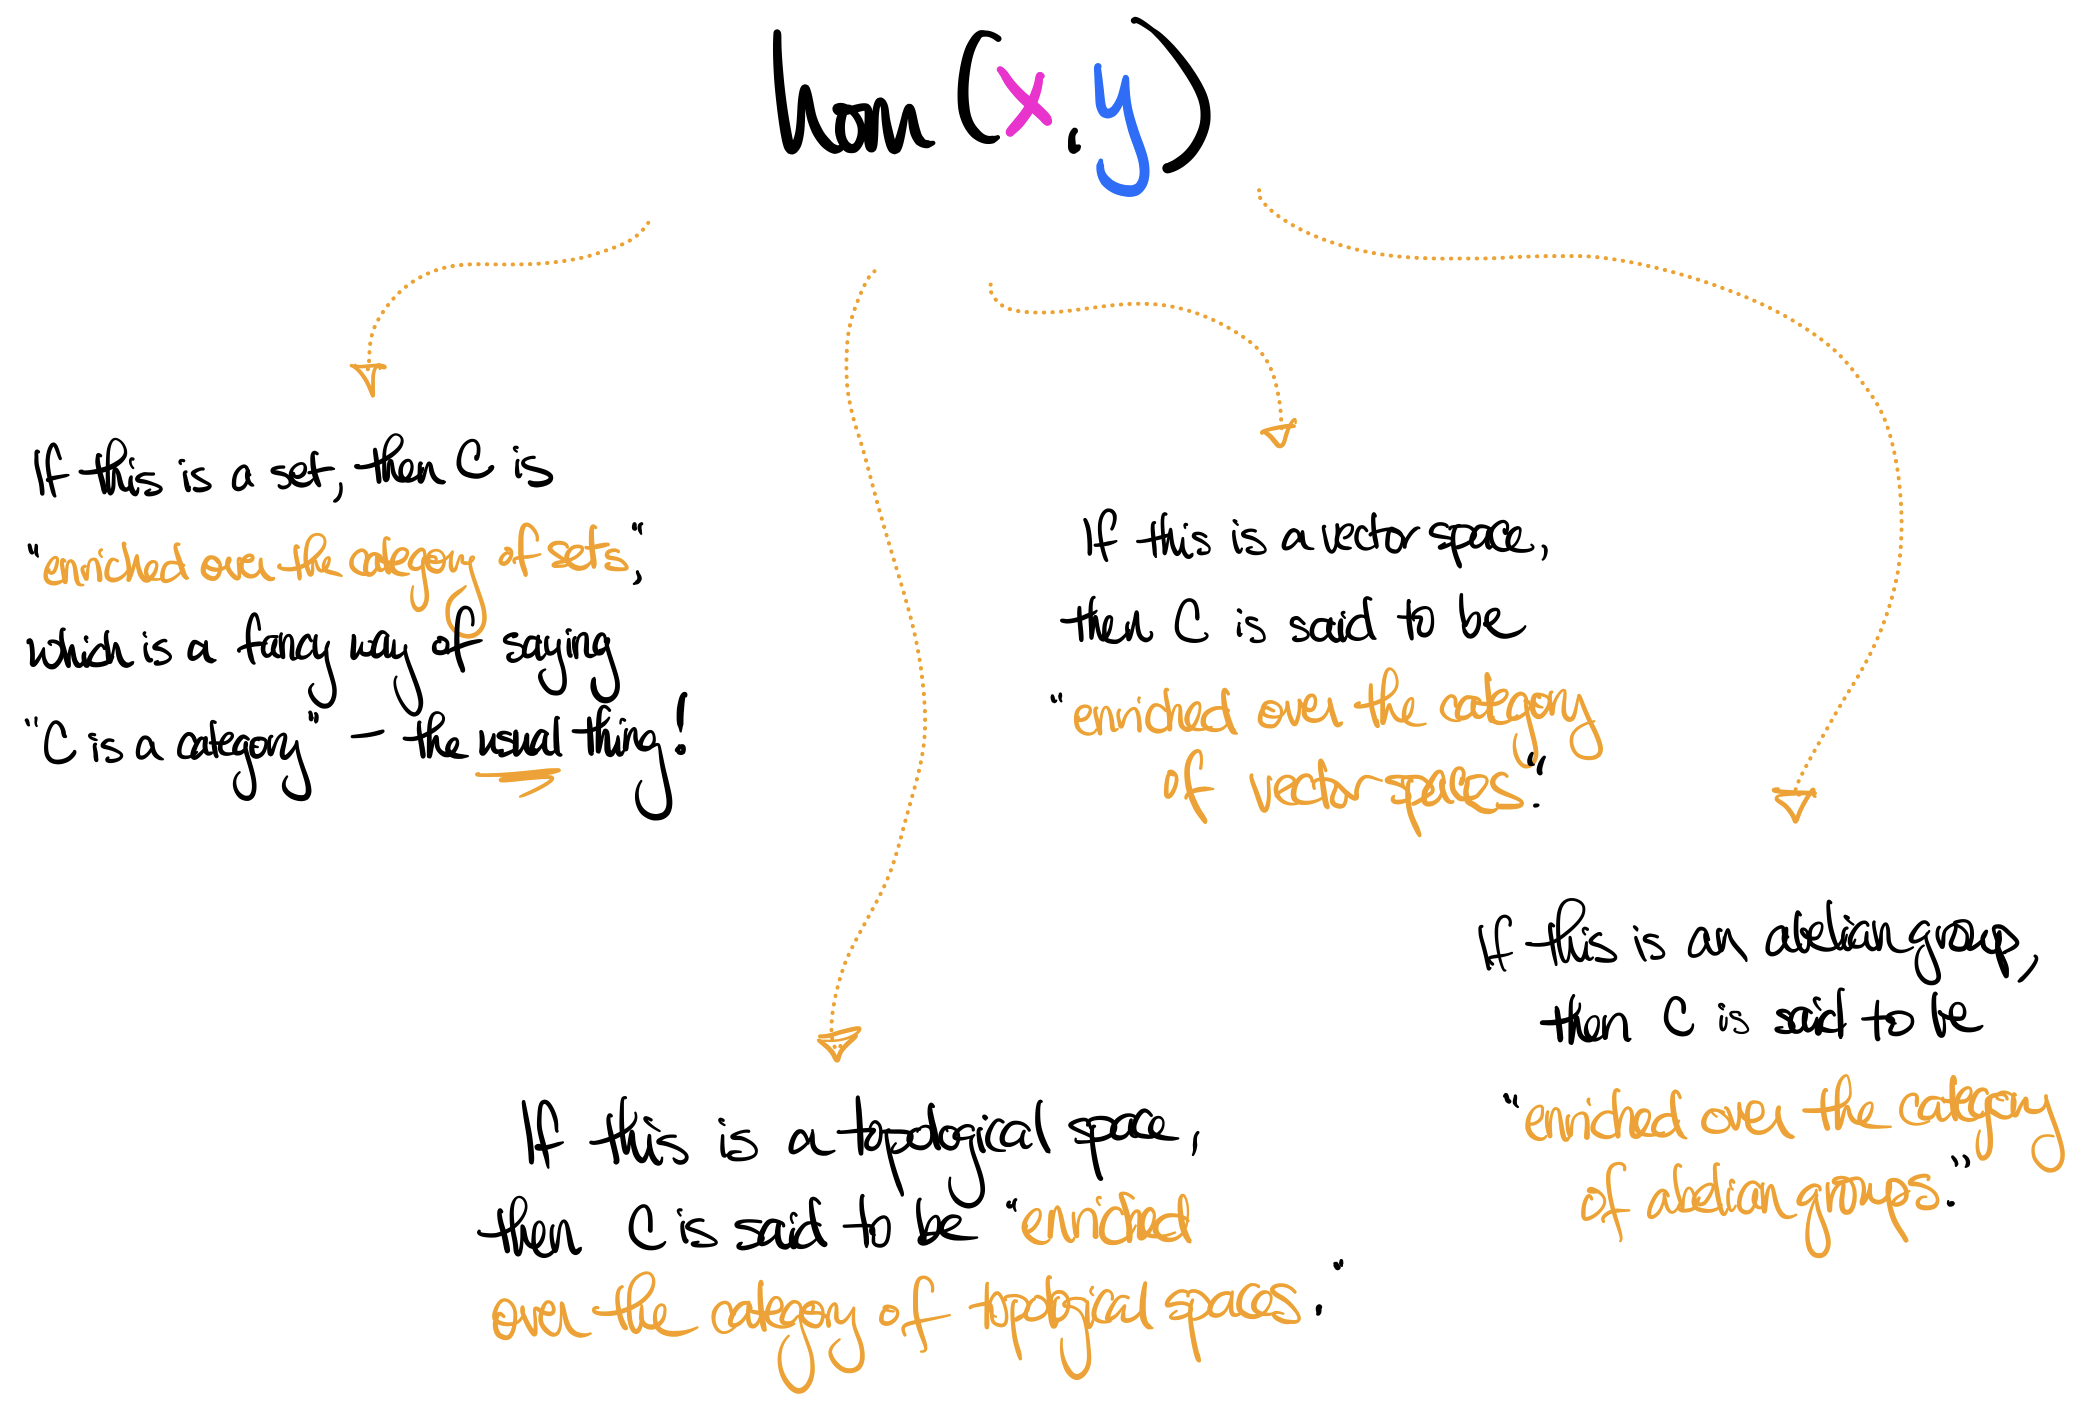 hom(x,y)
If this is a set, then C is
"enriched over the category of sets,"
which is a fancy way of saying
"C is a category" – the usual thing!
If this is a vector space,
then C is said to be
"enriched over the category
of vector spaces."
If this is an abelian group,
then C is said to be
"enriched over the category
of abelian groups."
If this is a topological space,
then C is said to be "enriched
over the category of topological spaces."